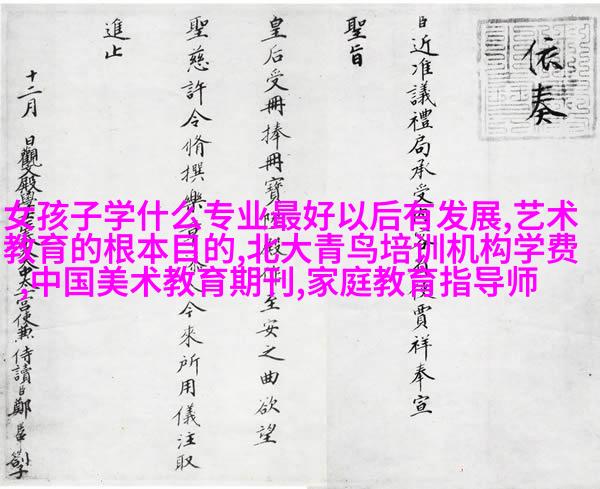 依奏
臣近准議禮局承受賈祥奉宣
聖旨
皇后受冊捧冊寶殿作至安之曲欲望
聖慈許令脩撰樂今來所用儀注取
進止
十二月 日觀文殿學士太一宮使兼侍讀臣鄭
女孩子学什么专业最好以后有发展,艺术
教育的根本目的,北大青鸟培训机构学费
,中国美术教育期刊,家庭教育指导师